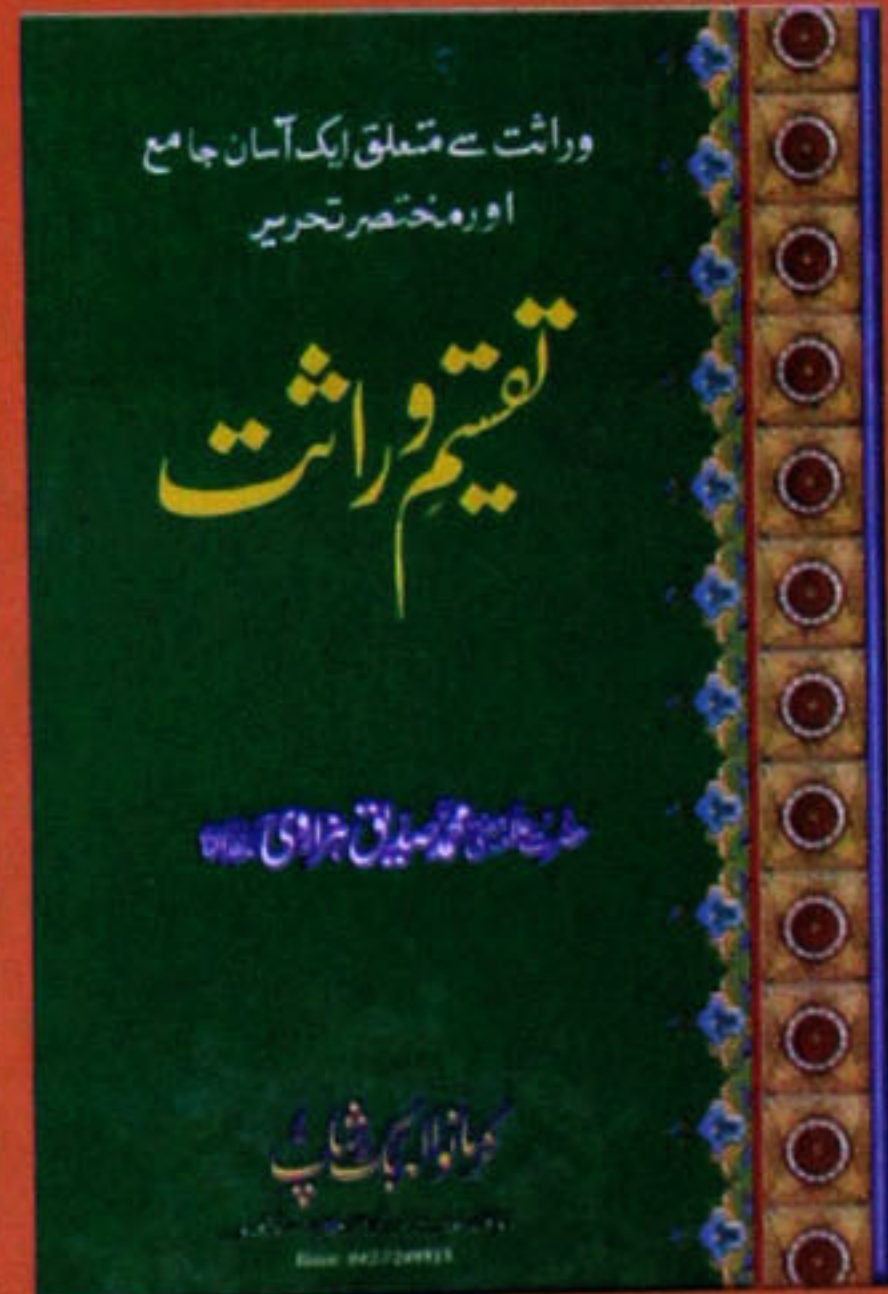 وراثت سے متعلق ایک آسان جامع
اور مختصر تحریر
تقسیمِ وراثت
محمد صدیق ہزاروی
کرمانوالہ بک شاپ